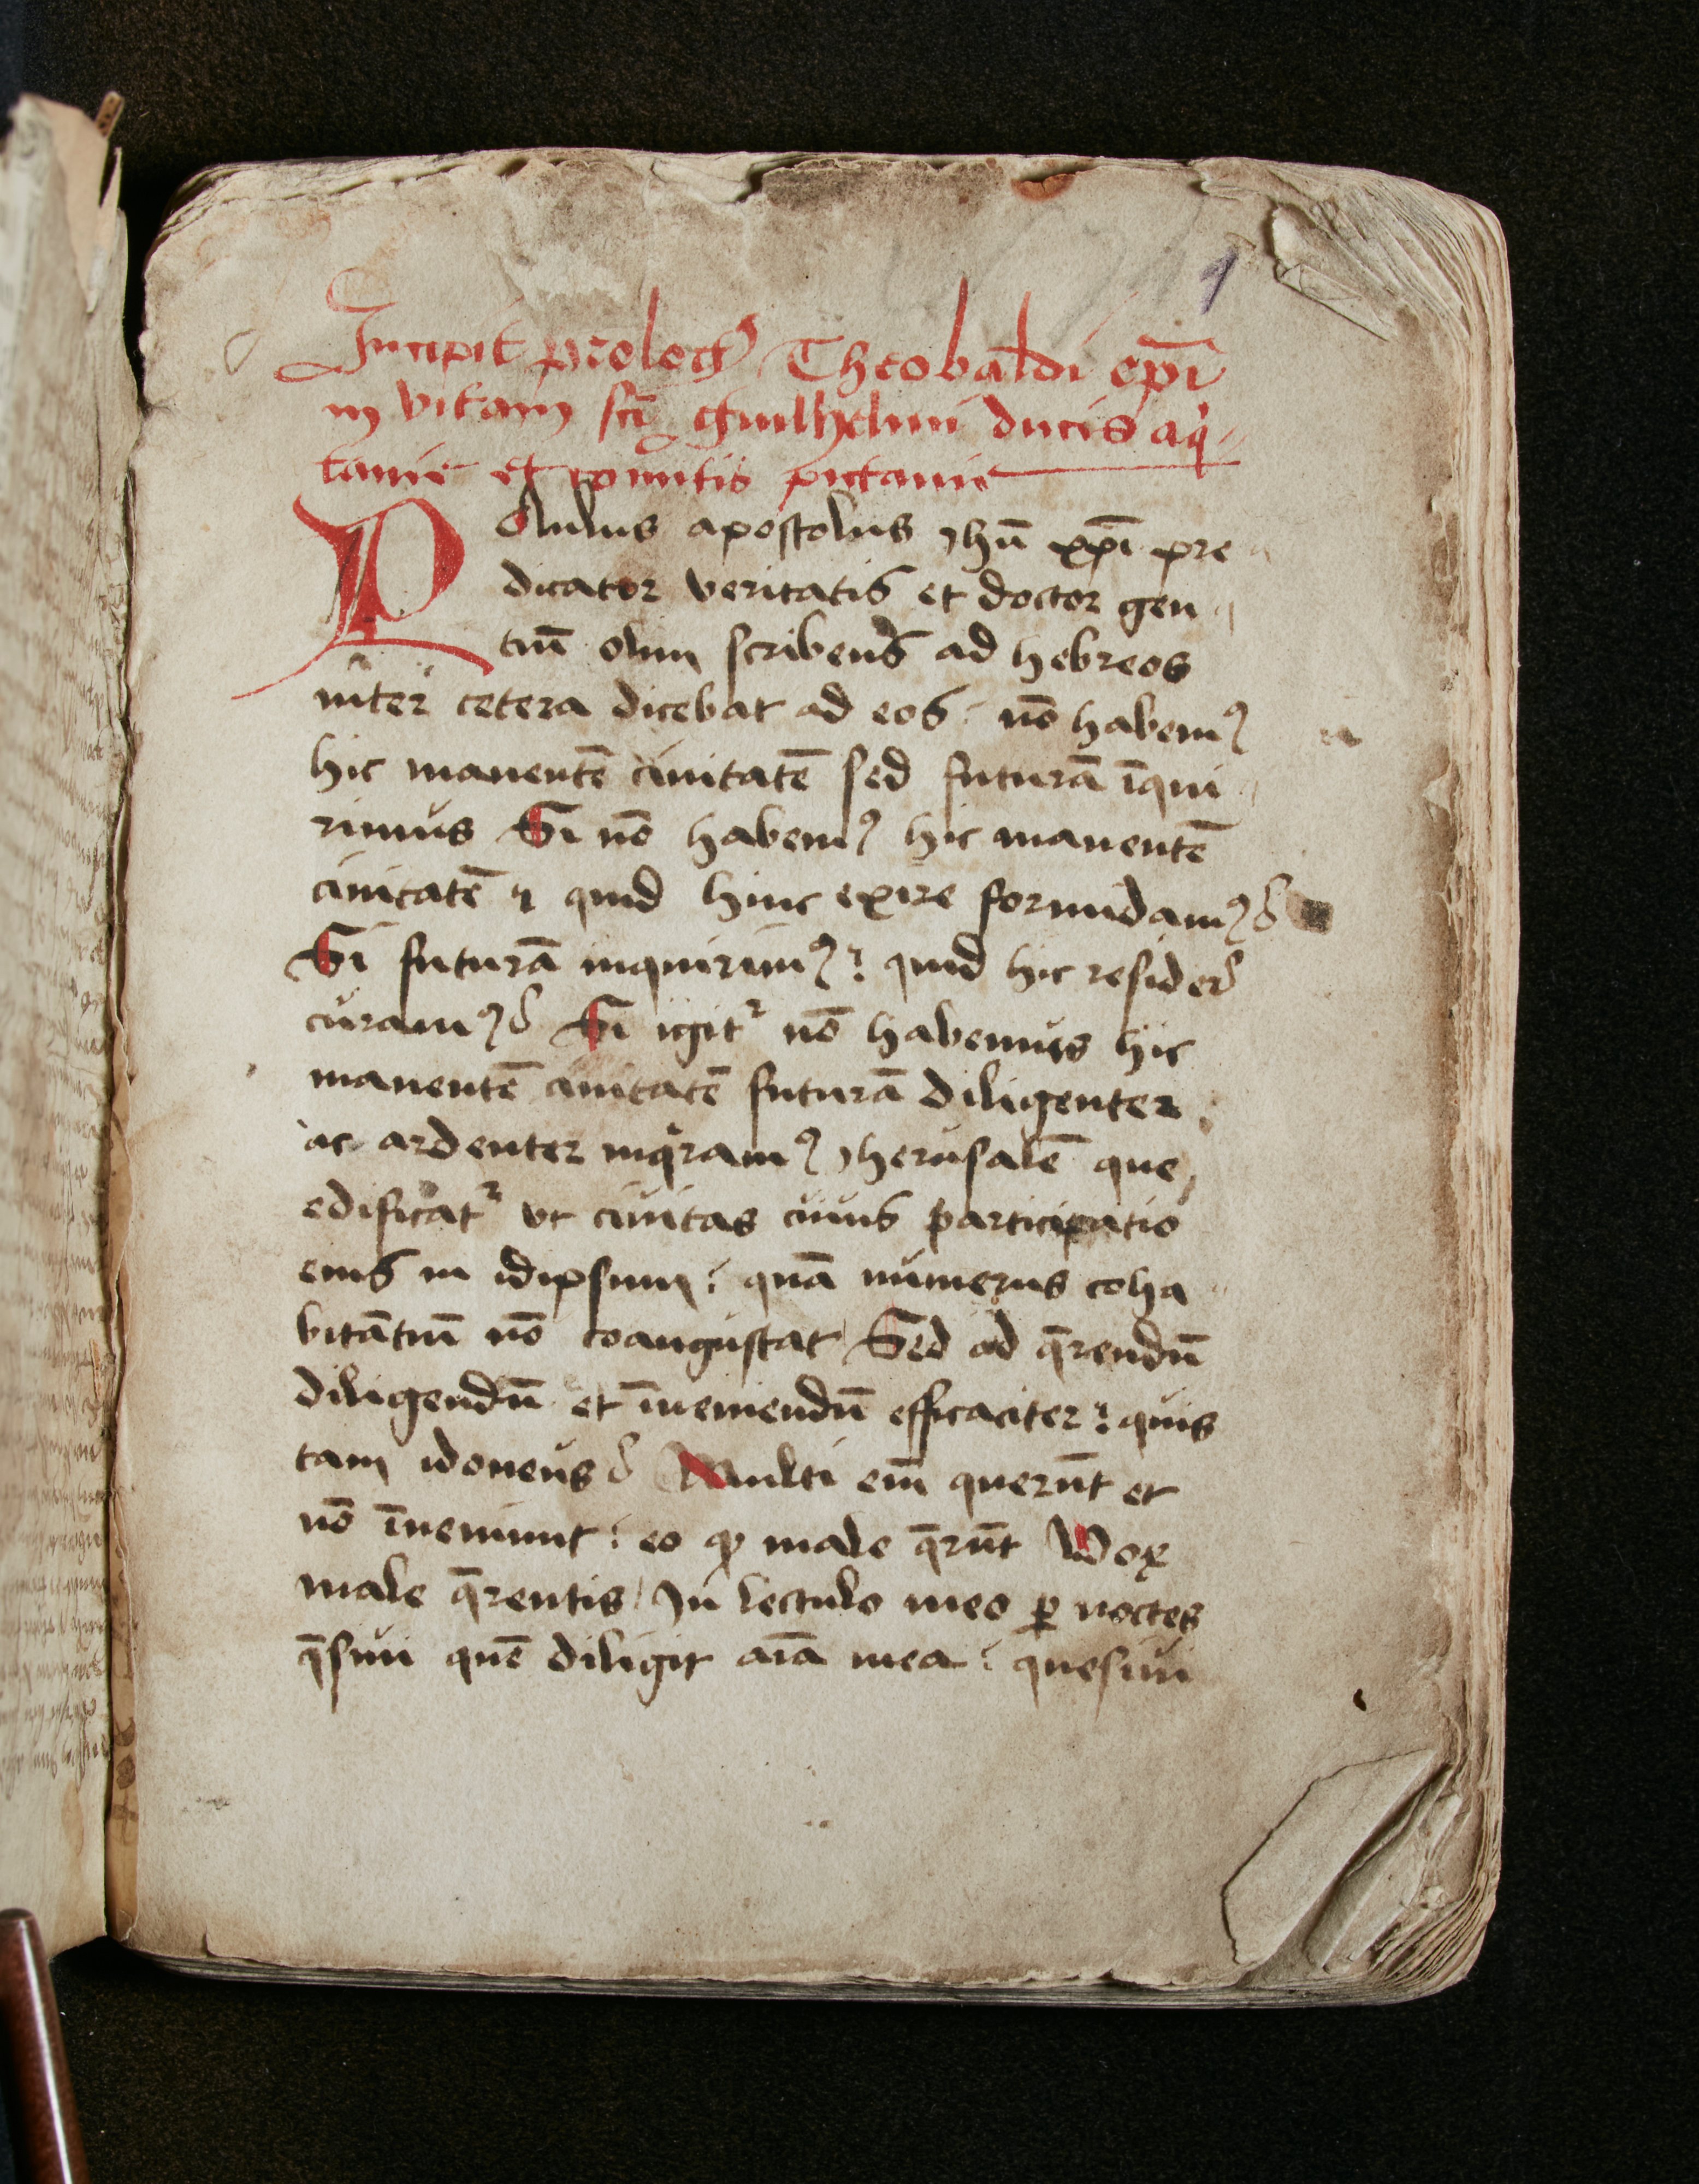 1
Incipit prologꝰ Theobaldi epī
in vitam scī Guilhelmi ducis aqͥ
tanie et comitis pictanie
PAulus apostolus Jhū xp̄i pre
dicator veritatis et doctor gen
tiū olim scribens ad hebreos
inter cetera dicebat ad eos: nō habemꝰ
hic manentē ciuitatē sed futurā īqui
rimus Si nō habemꝰ hic manentē
ciuitatē quid hinc exire formidamꝰ?
Si futurā inquirimꝰ: quid hic resider̄
curamꝰ? Si igitᷣ nō habemus hic
manentē ciuitatē futurā diligenter
ac ardenter inqͥramꝰ Jherusalē que
edificatᷣ vt ciuitas cuius participatio
eius in idipsum: quā numerus coha
bitātiū nō coangustat Sed ad q̄rendū
diligendū et īueniendū efficaciter: quis
tam idoneus? Multi eīm querūt et
nō īueniunt: eo ꝙ male q̄rūt Vox
male q̄rentis/ In lectulo meo ꝑ noctes
q̄siui quē diligit aīa mea: quesiui